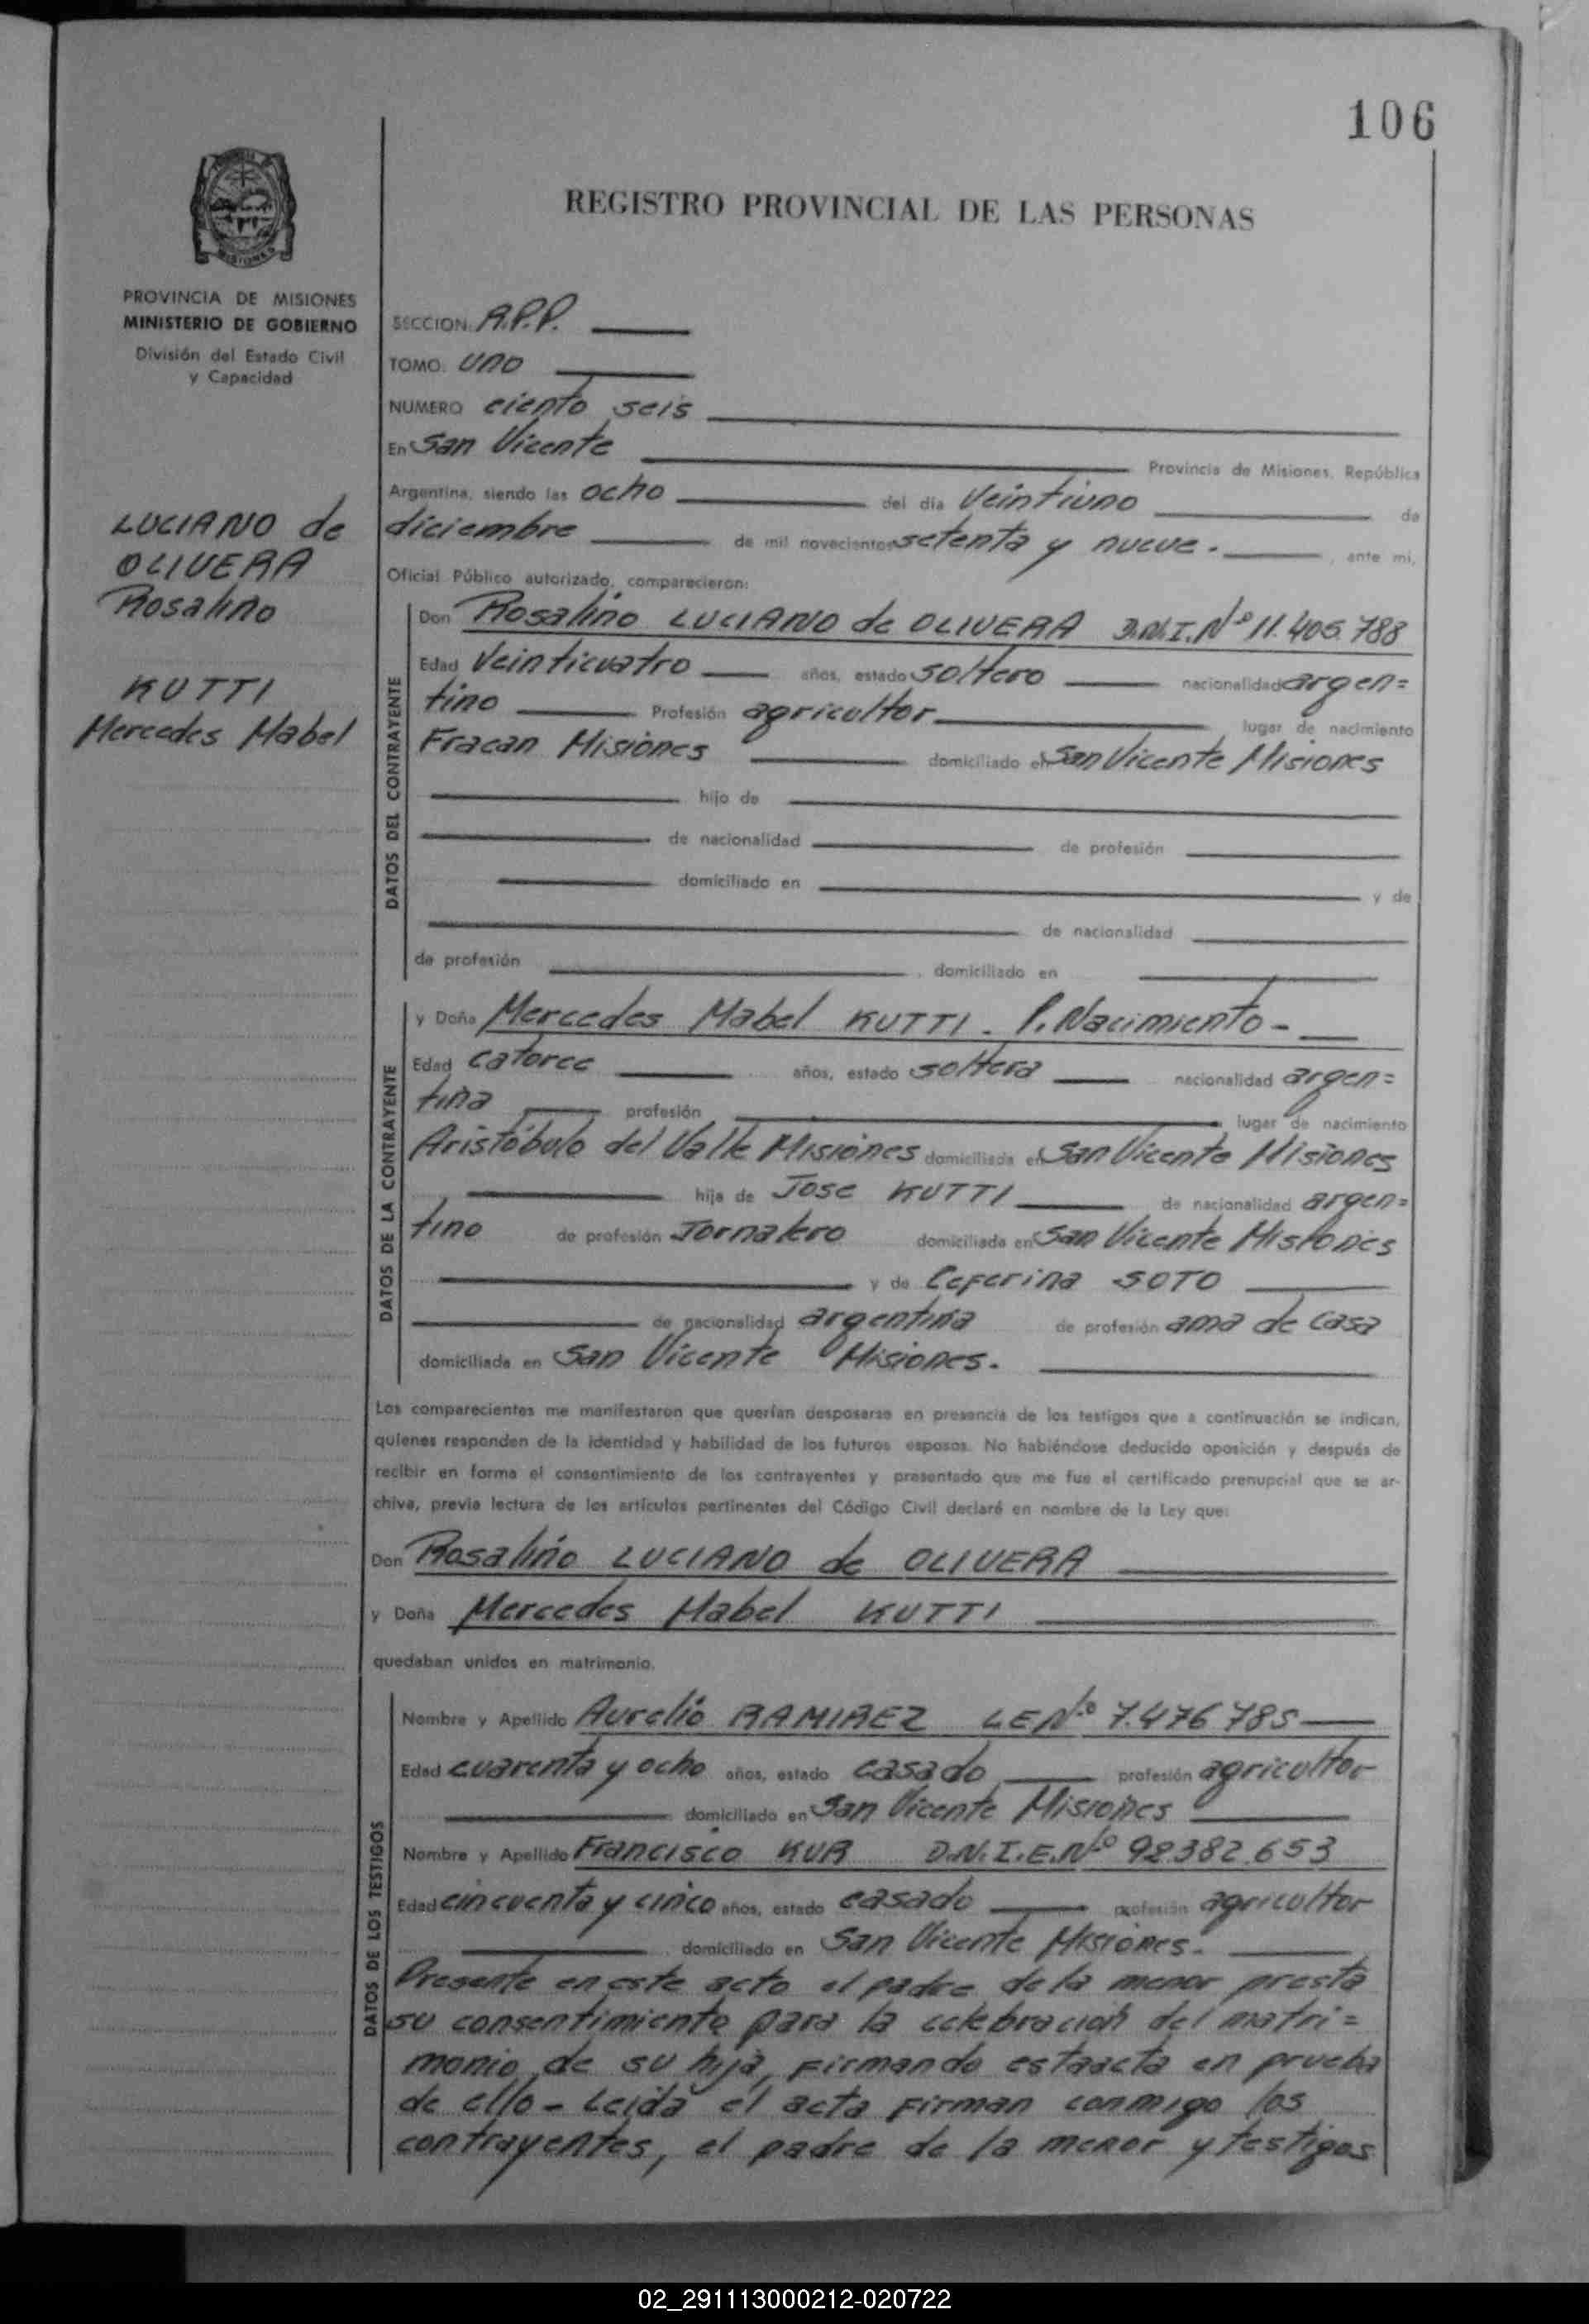 106
REGISTRO PROVINCIAL DE LAS PERSONAS
PROVINCIA DE MISIONES
MINISTERIO DE GOBIERNO
División del Estado Civil
y Capacidad
LUCIANO de
OLIVERA
Rosalino
KUTTI
Mercedes Mabel
SECCION: A.P.P.
TOMO: uno
NUMERO ciento seis
En San Vicente Provincia de Misiones, República
Argentina, siendo las ocho del día veintiuno de
diciembre de mil novecientos setenta y nueve. , ante mi,
Oficial Público autorizado, comparecieron:
DATOS DEL CONTRAYENTE
Don Rosalino LUCIANO de OLIVERA D.N.I. Nº 11.405.788
Edad veinticuatro años, estado soltero nacionalidad argen=
tino Profesión agricultor lugar de nacimiento
Fracan Misiones domiciliado en San Vicente Misiones
hijo de
de nacionalidad de profesión
domiciliado en y de
de nacionalidad
de profesión , domiciliado en
DATOS DE LA CONTRAYENTE
y Doña Mercedes Mabel KUTTI - P. Nacimiento -
Edad catorce años, estado soltera nacionalidad argen=
tina profesión lugar de nacimiento
Aristóbulo del Valle Misiones domiciliada en San Vicente Misiones
hija de Jose KUTTI de nacionalidad argen=
tino de profesión Jornalero domiciliada en San Vicente Misiones
y de Ceferina SOTO
de nacionalidad argentina de profesión ama de casa
domiciliada en San Vicente Misiones.
Los comparecientes me manifestaron que querían desposarse en presencia de los testigos que a continuación se indican,
quienes responden de la identidad y habilidad de los futuros esposos. No habiéndose deducido oposición y después de
recibir en forma el consentimiento de los contrayentes y presentado que me fue el certificado prenupcial que se ar-
chiva, previa lectura de los artículos pertinentes del Código Civil declaré en nombre de la Ley que:
Don Rosalino LUCIANO de OLIVERA
y Doña Mercedes Mabel KUTTI
quedaban unidos en matrimonio.
DATOS DE LOS TESTIGOS
Nombre y Apellido Aurelio RAMIREZ LE Nº 7.476785
Edad cuarenta y ocho años, estado casado profesión agricultor
domiciliado en San Vicente Misiones
Nombre y Apellido Francisco KUR D.N.I.E. Nº 92382.653
Edad cincuenta y cinco años, estado casado profesión agricultor
domiciliado en San Vicente Misiones.
Presente en este acto el padre de la menor presta
su consentimiento para la celebración del matri=
monio de su hija, firmando esta acta en prueba
de ello - Leida el acta firman conmigo los
contrayentes, el padre de la menor y testigos
02_291113000212-020722